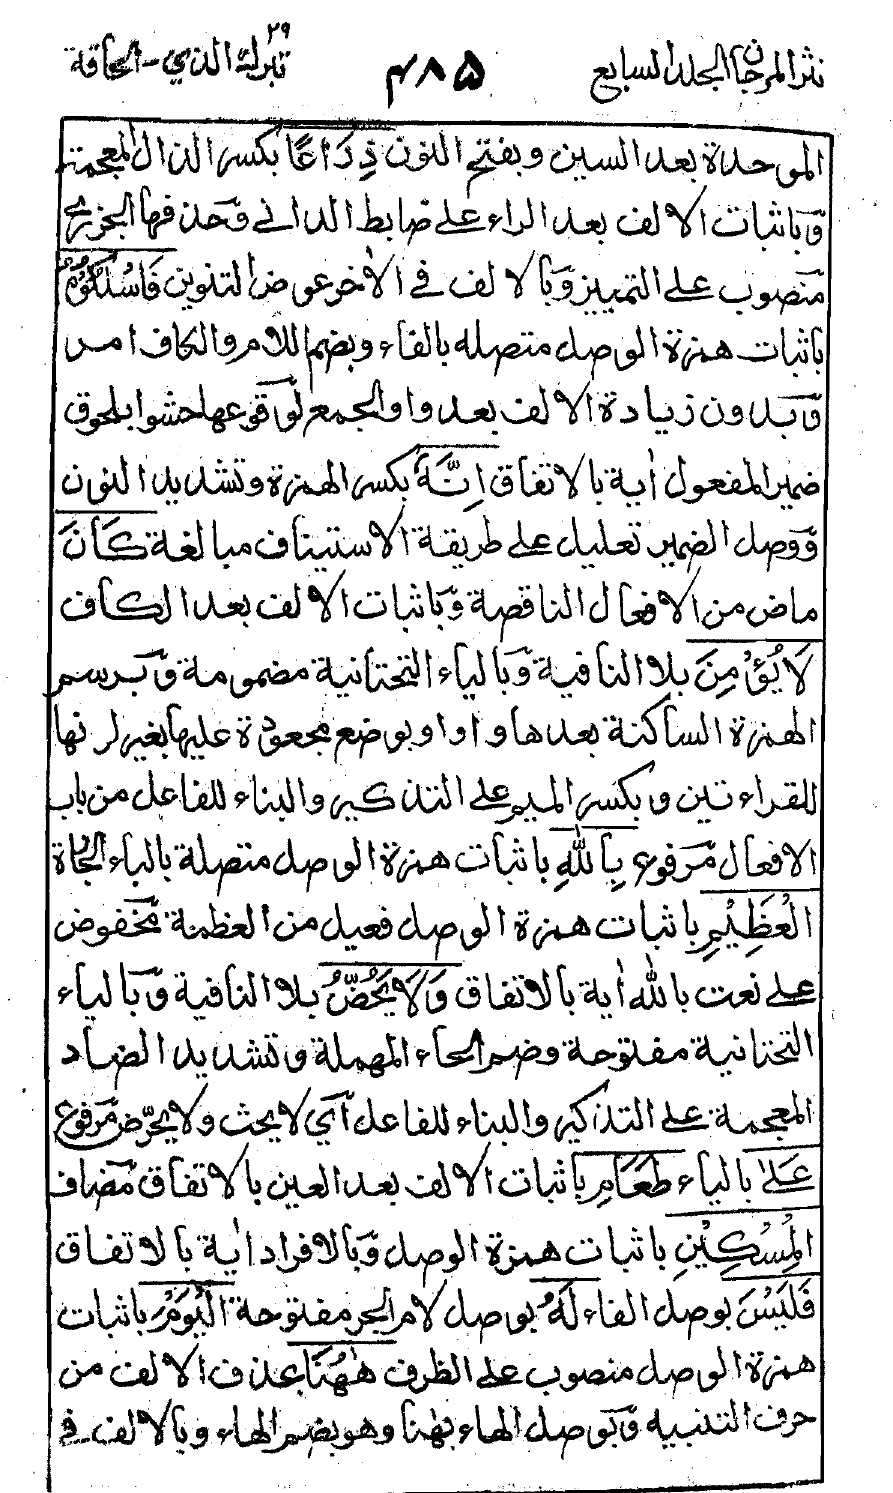 نثر المرجان المجلد السابع
٤٨٥
٢٩
تبرك الذي - الحاقة
الموحدة بعد السين وبفتح النون ذِرَاعًا بكسر الذال المعجمة
وَباثبات الالف بعد الراء على ضابط الداني وَحذفها الجزري
مَنصوب على التمييز وَبالالف في الأخر عوض التنوين فَاسْلُكُوْهُ
باثبات همزة الوصل متصله بالفاء وبضم اللام والكاف امر
وَبدون زيادة الالف بعد واو الجمع لوَقوعها حشوا بلحوق
ضمير المفعول أية بالاتفاق اِنَّهٗ بكسر الهمزة وتشديد النون
وَوصل الضمير تعليل على طريقة الاستيناف مبالغة كَانَ
ماض من الافعال الناقصة وَباثبات الالف بعد الكاف
لَا يُؤْمِنَ بلا النافية وَبالياء التحتانية مضمومة وَبرسم
الهمزة الساكنة بعدها واوا وبوضع مجعودة عليها بغير لونها
للقراءتين وبكسر الميم على التذكير والبناء للفاعل من باب
الافعال مَرفوع بِاللّٰهِ باثبات همزة الوصل متصلة بالباء الجارة
الْعَظِيْمِ باثبات همزة الوصل فعيل من العظمة مَخفوض
على نعت بالله أية بالاتفاق وَلَا يَحُضُّ بلا النافية وَبالياء
التحتانية مفتوحة وضم الحاء المهملة وتشديد الضاد
المعجمة على التذكير والبناء للفاعل اَي لا يحث ولا يحرّض مَرفوع
عَلٰى بالياء طَعَامِ باثبات الالف بعد العين بالاتفاق مَضاف
الْمِسْكِيْنِ باثبات همزة الوصل وَبالافراد اٰية بالاتفاق
فَلَيْسَ بوصل الفاء لَهُ بوصل لام الجر مفتوحة الْيَوْمَ باثبات
همزة الوصل منصوب على الظرف هٰهُنَا بحذف الالف من
حرف التنبيه وَبوصل الهاء بهنا وهو بضم الهاء وبالالف في